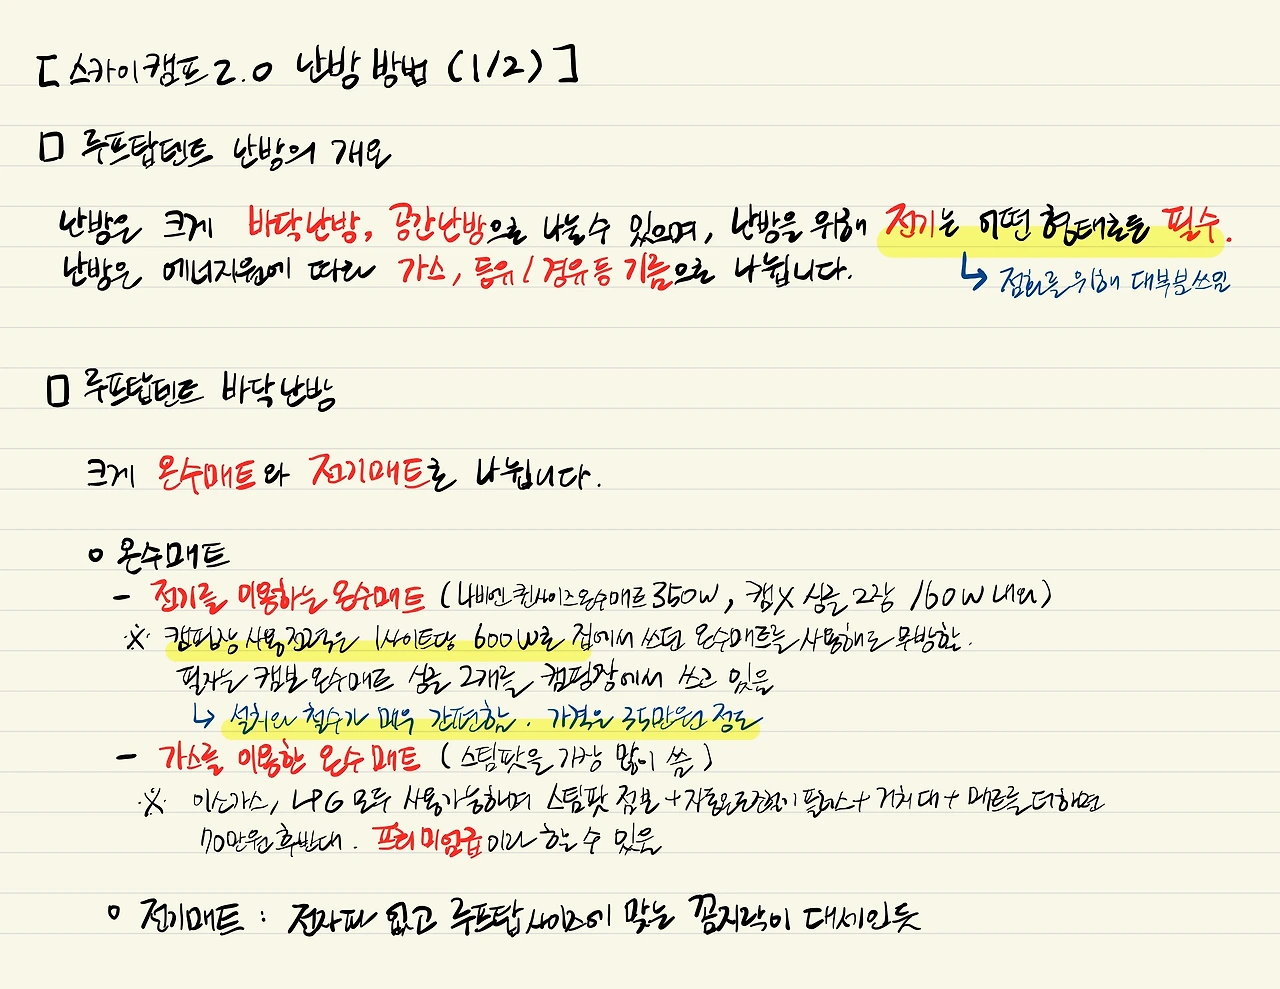 [스카이캠프 2.0 난방 방법 (1/2)]
□ 루프탑텐트 난방의 개요
난방은 크게 바닥난방, 공간난방으로 나눌 수 있으며, 난방을 위해 전기는 어떤 형태로든 필수.
난방은 에너지원에 따라 가스, 등유/경유 등 기름으로 나뉩니다.
↳ 점화를 위해 대부분 쓰임
□ 루프탑텐트 바닥난방
크게 온수매트와 전기매트로 나뉩니다.
○ 온수매트
- 전기를 이용하는 온수매트 (나비엔 퀸사이즈 온수매트 350W, 캠X 싱글 2장 160W 내외)
※ 캠핑장 사용전력은 1사이트당 600W로 집에서 쓰던 온수매트를 사용해도 무방함.
필자는 캠보 온수매트 싱글 2개를 캠핑장에서 쓰고 있음
↳ 설치와 철수가 매우 간편함. 가격은 35만원 정도
- 가스를 이용한 온수매트 (스팀팟을 가장 많이 씀)
※ 이소가스, LPG 모두 사용가능하며 스팀팟 점보 + 자동온도조절기 플러스 + 거치대 + 매트를 더하면
70만원 후반대. 프리미엄급이라 할 수 있음
○ 전기매트 : 전자파 없고 루프탑 사이즈에 맞는 꼼지락이 대세인듯